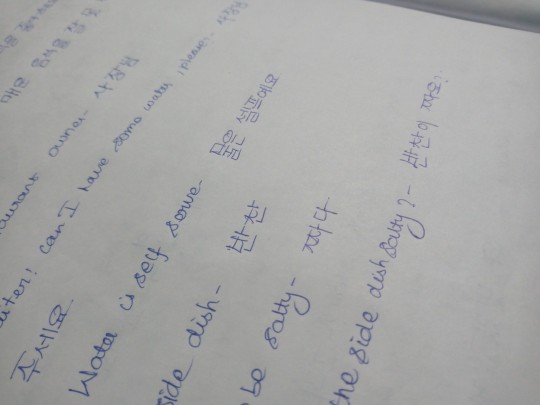 매운 음식을 잘
owner- 사장님
can I have some water, please?- 사장님
주세요
Water is self serve- 물은 셀프에요
side dish- 반찬
be salty- 짜다
the side dish salty?- 반찬이 짜요?